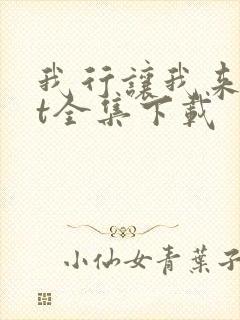 我行讓我來
t全集下載
小仙女青葉子